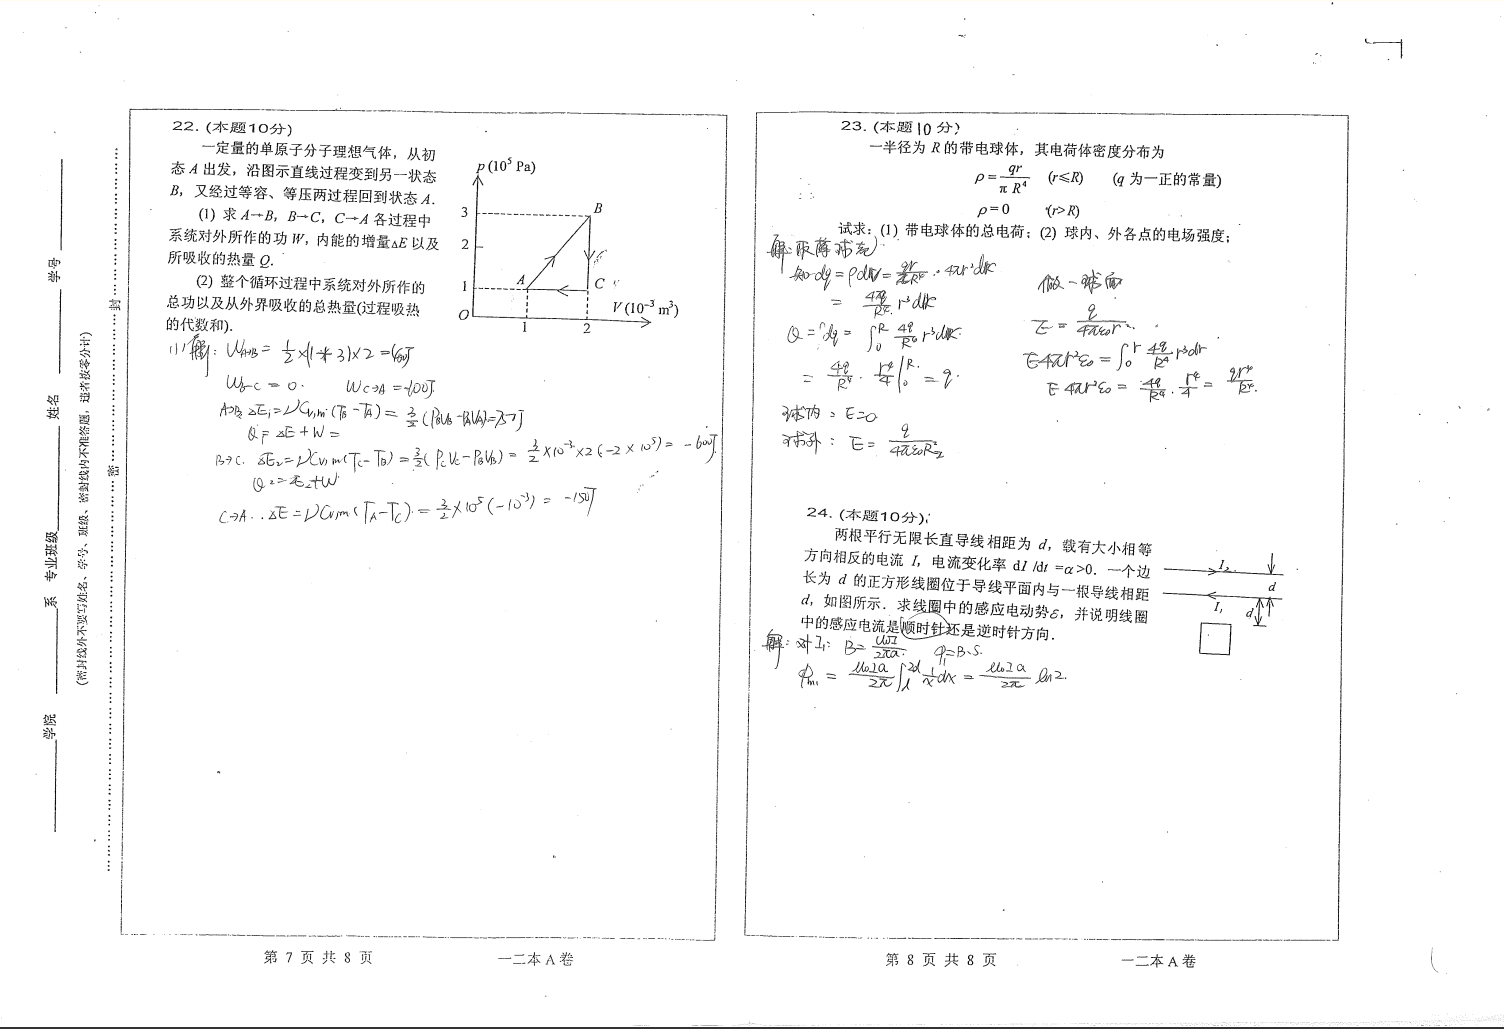 学院
系
专业班级
姓名
学号
(密封线外不要写姓名、学号、班级、密封线内不准答题，违者按零分计)
密
封
22. (本题10分)
一定量的单原子分子理想气体，从初
态 A 出发，沿图示直线过程变到另一状态
B，又经过等容、等压两过程回到状态 A.
(1) 求 A→B，B→C，C→A 各过程中
系统对外所作的功 W，内能的增量ΔE 以及
所吸收的热量 Q.
(2) 整个循环过程中系统对外所作的
总功以及从外界吸收的总热量(过程吸热
的代数和).
p (10⁵ Pa)
3
2
1
O
A
B
C
1
2
V (10⁻³ m³)
W_B→C = 0. W_C→A = -100J
A→B ΔE₁ = νCv,m (T_B - T_A) = 3/2 (P_BV_B - P_AV_A) = 
Q₁ = ΔE + W =
B→C. ΔE₂ = νCv,m (T_C - T_B) = 3/2 (P_CV_C - P_BV_B) = 3/2 × 10⁻³ × 2 (-2 × 10⁵) = -600J
C→A. ΔE = νCv,m (T_A - T_C) = 3/2 × 10⁵ (-10⁻³) = -150J
第 7 页 共 8 页
一二本 A 卷
23. (本题 10 分)
一半径为 R 的带电球体，其电荷体密度分布为
ρ = qr/πR⁴ (r≤R) (q 为一正的常量)
ρ = 0 (r>R)
试求：(1) 带电球体的总电荷；(2) 球内、外各点的电场强度；
解：取薄球壳
知 dq = ρdV = qr/πR⁴ · 4πr²dr
= 4q/R⁴ r³dr
Q = ∫dq = ∫₀ᴿ 4q/R⁴ r³dr
= 4q/R⁴ · r⁴/4 |₀ᴿ = q.
做一球面
E = q/4πε₀r².
E4πr²ε₀ = ∫₀ʳ 4q/R⁴ r³dr
E4πr²ε₀ = 4q/R⁴ · r⁴/4 = qr⁴/R⁴.
球内：E=0
球外：E = q/4πε₀R₂²
24. (本题10分)
两根平行无限长直导线相距为 d，载有大小相等
方向相反的电流 I，电流变化率 dI /dt =α>0. 一个边
长为 d 的正方形线圈位于导线平面内与一根导线相距
d，如图所示. 求线圈中的感应电动势ε，并说明线圈
中的感应电流是顺时针还是逆时针方向.
I₂
I₁
d
d
解：对I₁: B = μ₀I/2πa. φ = B·S.
φm₁ = μ₀Ia/2π ∫ 1/x dx = μ₀Ia/2π ln2.
第 8 页 共 8 页
一二本 A 卷